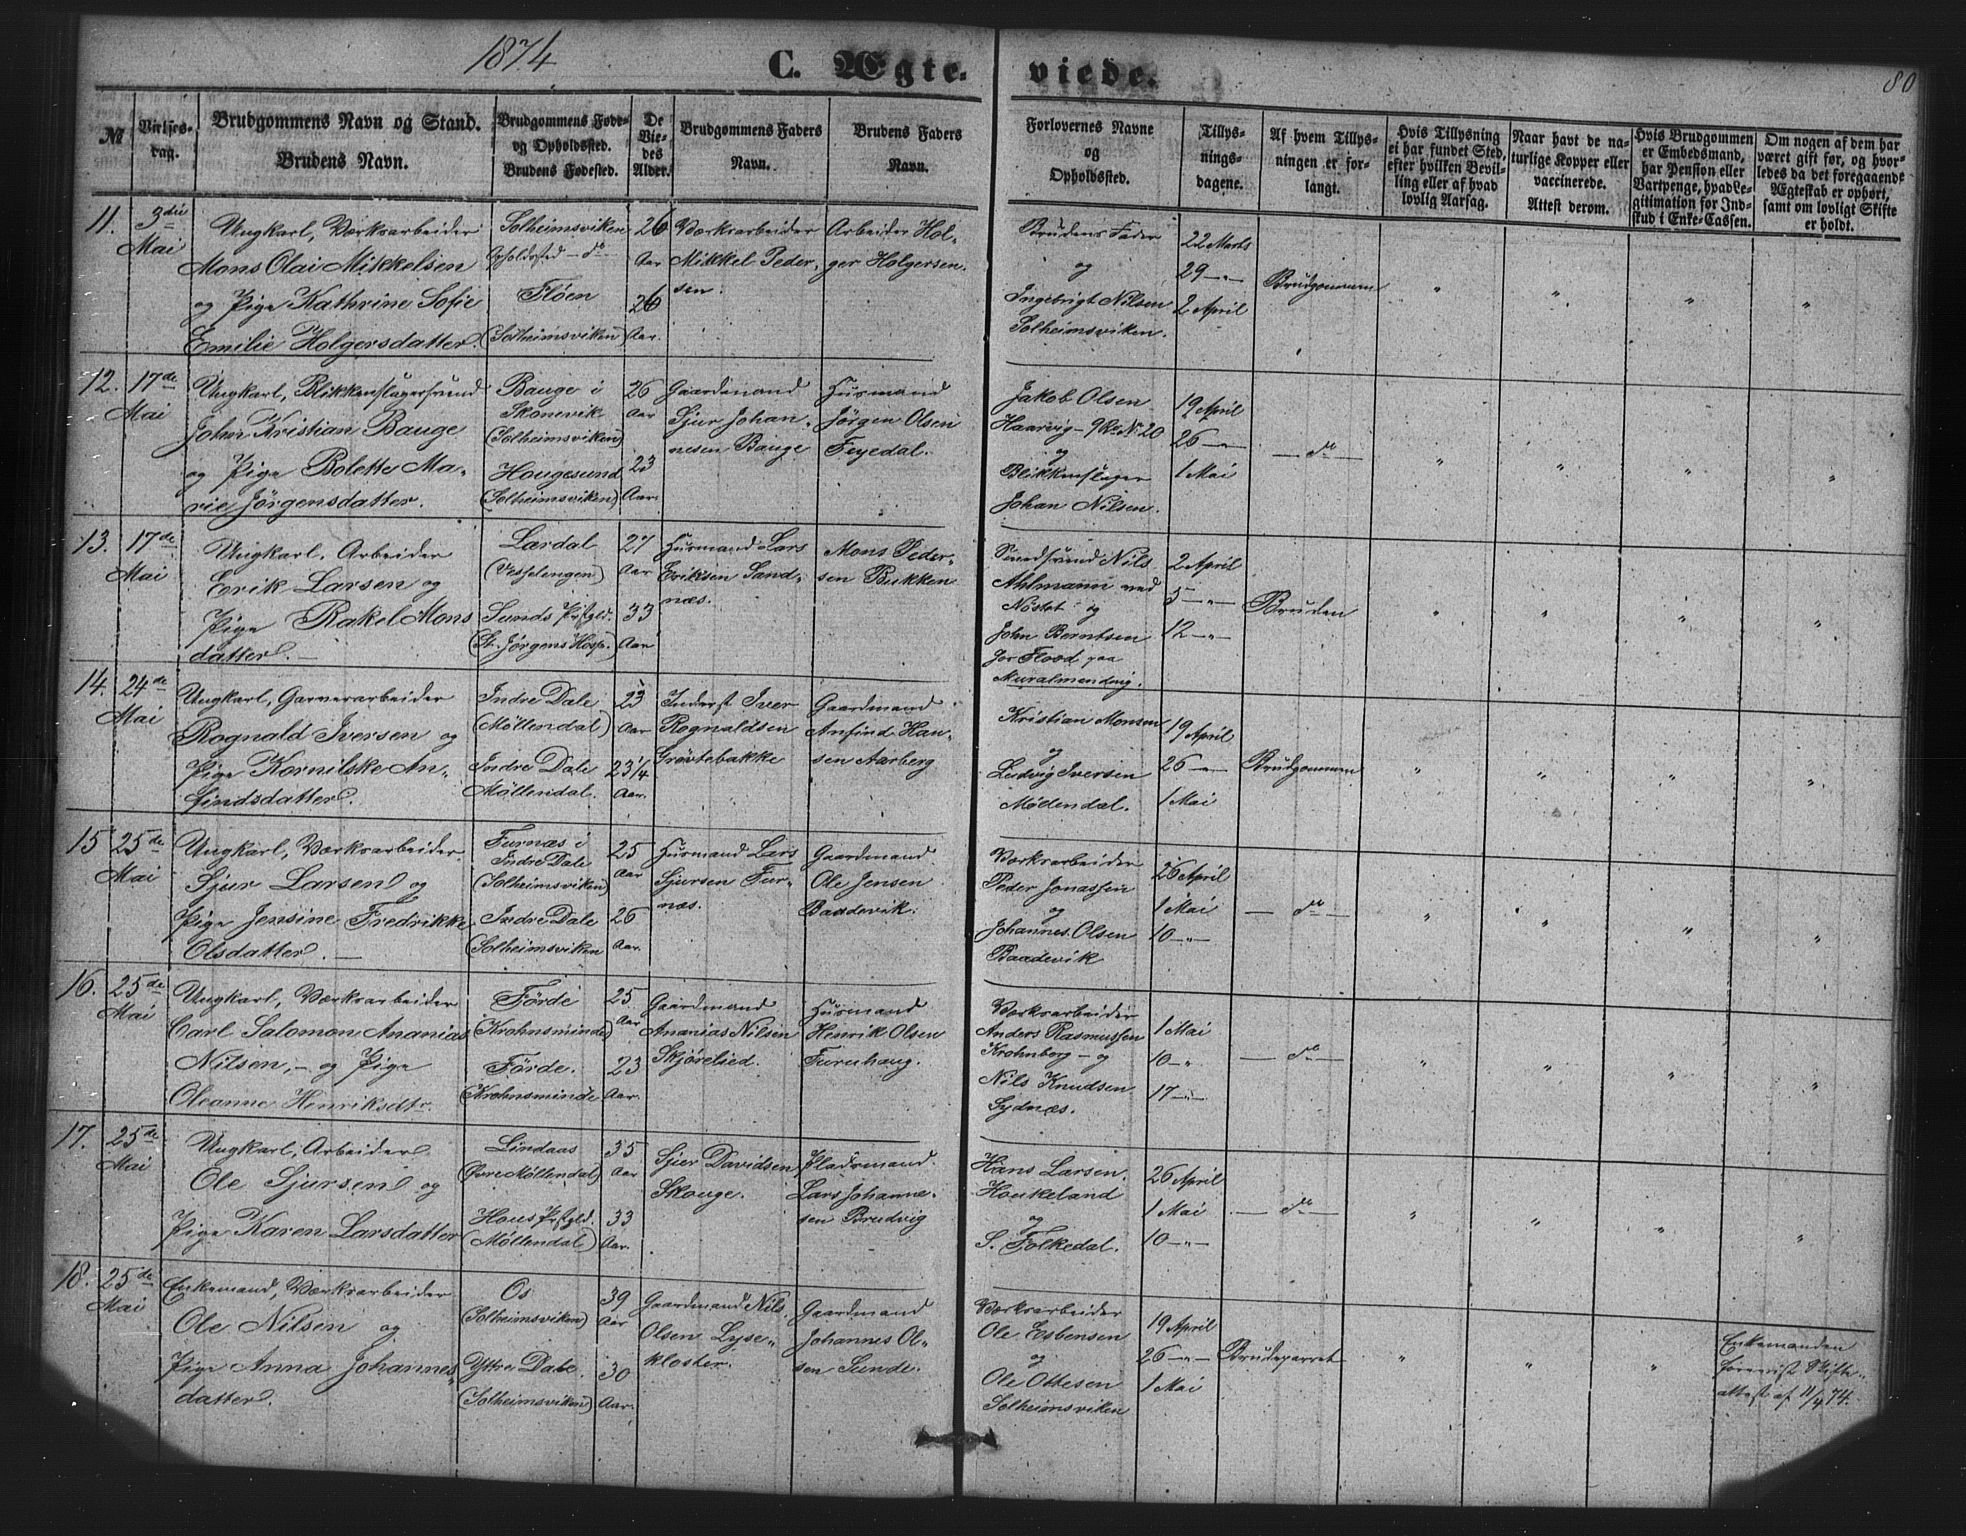 1874
C. Ægte-
viede.
80
№
Vielses-
dag.
Brudgommens Navn og Stand.
Brudens Navn.
Brudgommens Føde-
og Opholdssted.
Brudens Fødested.
De
Vie-
des
Alder.
Brudgommens Faders
Navn.
Brudens Faders
Navn.
Forlovernes Navne
og
Opholdssted.
Tillys-
nings-
dagene.
Af hvem Tillys-
ningen er for-
langt.
Hvis Tillysning
ei har fundet Sted,
efter hvilken Bevil-
ling eller af hvad
lovlig Aarsag.
Naar havt de na-
turlige Kopper eller
vaccinerede.
Attest derom.
Hvis Brudgommen
er Embedsmand,
har Pension eller
Vartpenge, hvad Le-
gitimation for Ind-
skud i Enke-Cassen.
Om nogen af dem har
været gift før, og hvor-
ledes da det foregaaende
Ægteskab er ophørt,
samt om lovligt Skifte
er holdt.
11.
3die
Mai
Ungkarl, Værksarbeider
Mons Olai Mikkelsen
og Pige Kathrine Sofie
Emilie Holgersdatter.
Solheimsviken
Opholdssted - do
Fløen
(Solheimsviken)
26
Aar
26
Aar.
Værksarbeider
Mikkel Peder-
sen.
Arbeider Hol-
ger Holgersen.
Brudens Fader
og
Ingebrigt Nilsen
Solheimsviken.
22 Marts
29 - " -
2 April
Brudgommen
" " " "
12.
17de
Mai
Ungkarl, Blikkenslagersvend
John Kristian Bauge
og Pige Bolette Ma-
rie Jørgensdatter.
Bauge i
Skonevik
(Solheimsviken)
Hougesund
(Solheimsviken)
26
Aar
23
Aar.
Gaardmand
Sjur Johan-
nesen Bauge
Husmand
Jørgen Olsen
Feyedal.
Jakob Olsen
Haarvig - 9 Rd. No. 20
og
Blikkenslager
Johan Nilsen.
19 April
26 - " -
1 Mai
- do -
" " " "
13.
17de
Mai
Ungkarl, Arbeider
Erik Larsen og
Pige Rakel Mons
datter. -
Lærdal
Sunds Pr̃stgld.
(St. Jørgens Hosp.)
27
Aar
33
Aar
Husmand Lars
Eriksen Sand-
næs.
Mons Peder-
sen Bukken
Nils
Ahlmann ved
Nøstet og
John Berntsen
for Flood paa
Muralmendng.
2 April
5 - " -
12 - " -
Bruden
" " " "
14.
24de
Mai
Ungkarl, Garverarbeider
Rognald Iversen og
Pige Kornilske An-
findsdatter.
Indre Dale
(Møllendal)
Indre Dale
Møllendal.
23
Aar
23 1/4
Aar.
Inderst Iver
Rognaldsen
Grøvtebakke
Gaardmand
Anfind Han-
sen Aarberg
Kristian Monsen
og
Ludvig Iversen
Møllendal.
19 April
26 - " -
1 Mai
Brudgommen
" " " "
15
25de
Mai
Ungkarl, Værksarbeider
Sjur Larsen og
Pige Jensine Fredrikke
Olsdatter. -
Furnæs i
Indre Dale
(Solheimsviken)
Indre Dale
(Solheimsviken
25
Aar
26
Aar.
Husmand Lars
Sjursen Fur-
næs.
Gaardmand
Ole Jensen
Baadevik.
Værksarbeider
Peder Jonassen
og
Johannes Olsen
Baadevik
26 April
1 Mai
10 - " -
- do -
" " " "
16.
25de
Mai
Ungkarl, Værksarbeider
Carl Salomon Ananias
Nilsen, - og Pige
Oleanne Henriksdtr.
Førde
(Krohnsminde)
Førde.
(Krohnsminde
25
Aar
23
Aar.
Gaardmand
Ananias Nilsen
Skjørelied.
Husmand
Henrik Olsen
Furuhaug.
Værksarbeider
Anders Rasmussen
Krohnberg - og
Nils Knudsen
Sydnæs.
1 Mai
10 - "
17 - " -
- do -
" " " "
17.
25de
Mai
Ungkarl, Arbeider
Ole Sjursen og
Pige Karen Larsdatter
Lindaas
(Øvre Møllendal)
Hous Pr̃stgld.
(Møllendal)
35
Aar
33
Aar.
Sjur Davidsen
Skouge.
Pladsmand
Lars Johanne-
sen Brudvig
Hans Larsen
Houkeland
og
S. Folkedal.
26 April
1 Mai
10 - " -
- do -
" " " "
18.
25de
Mai
Enkemand, Værksarbeider
Ole Nilsen og
Pige Anna Johannes-
datter.
Os
(Solheimsviken)
Yttre Dale.
(Solheimsviken)
39
Aar
30
Aar.
Gaardmand Nils
Olsen Lyse-
kloster.
Gaardmand
Johannes Ol-
sen Sunde.
Værksarbeider
Ole Esbensen
og
Ole Ottesen
Solheimsviken
19 April
26 - " -
1 Mai
Brudeparret
" " "
Enkemanden
forevist Skifte-
attest af 11/4 74.